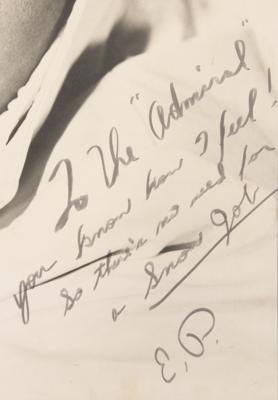 To the "Admiral"
you know how I feel!
So there's no need for
a Snow Job
E.P.